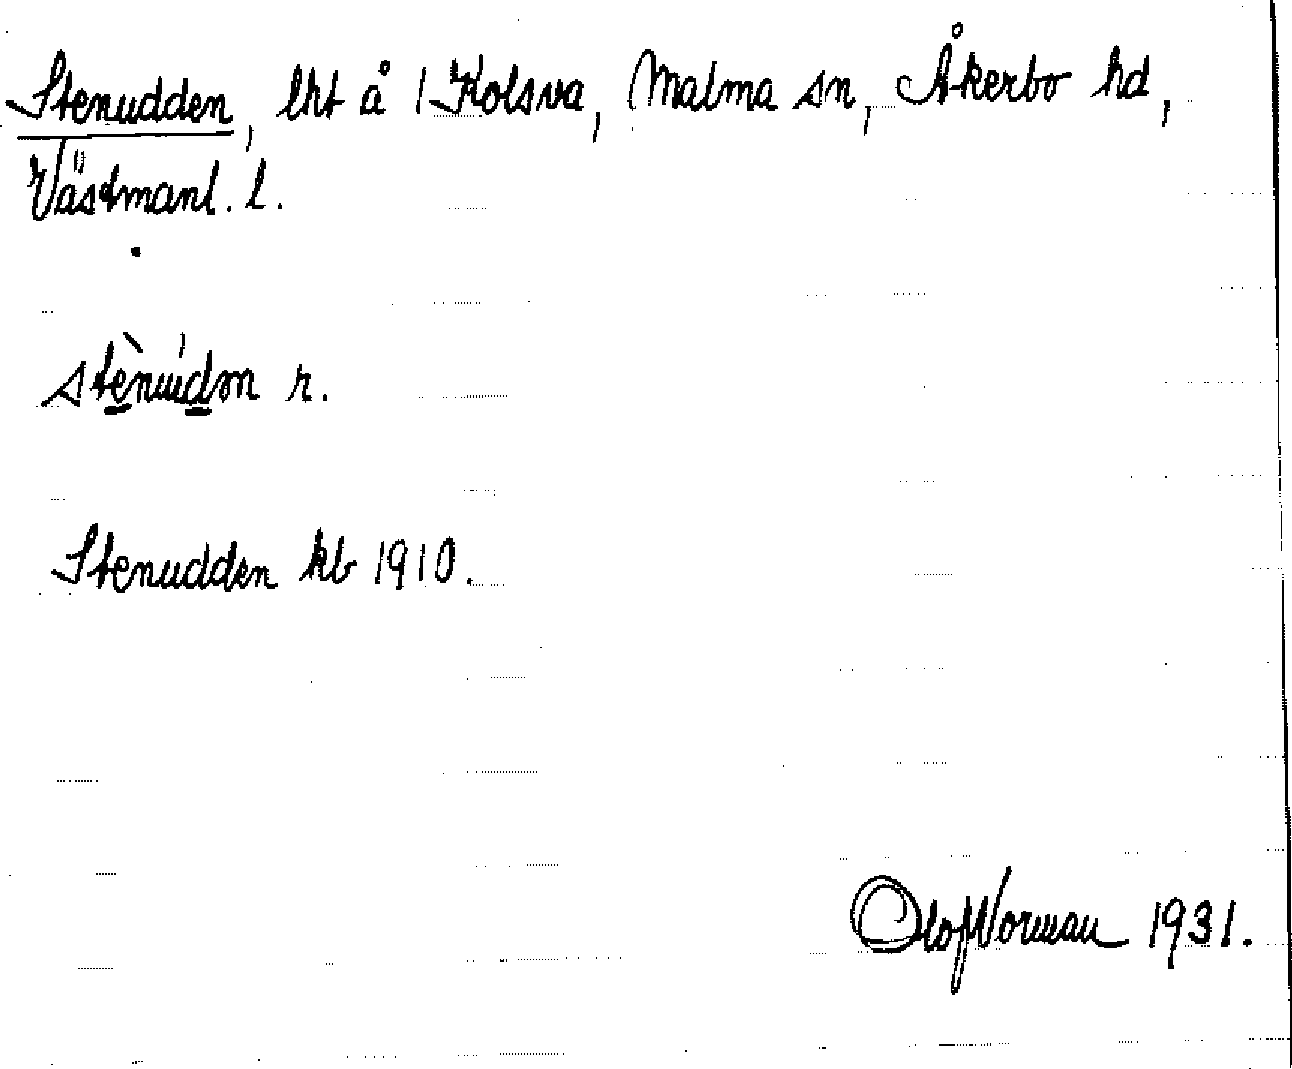 Stenudden, lht å 1 Kolsva, Malma sn, Åkerbo hd,
Västmanl. l.
stènúdn r.
Stenudden kb 1910.
Olof Norman 1931.